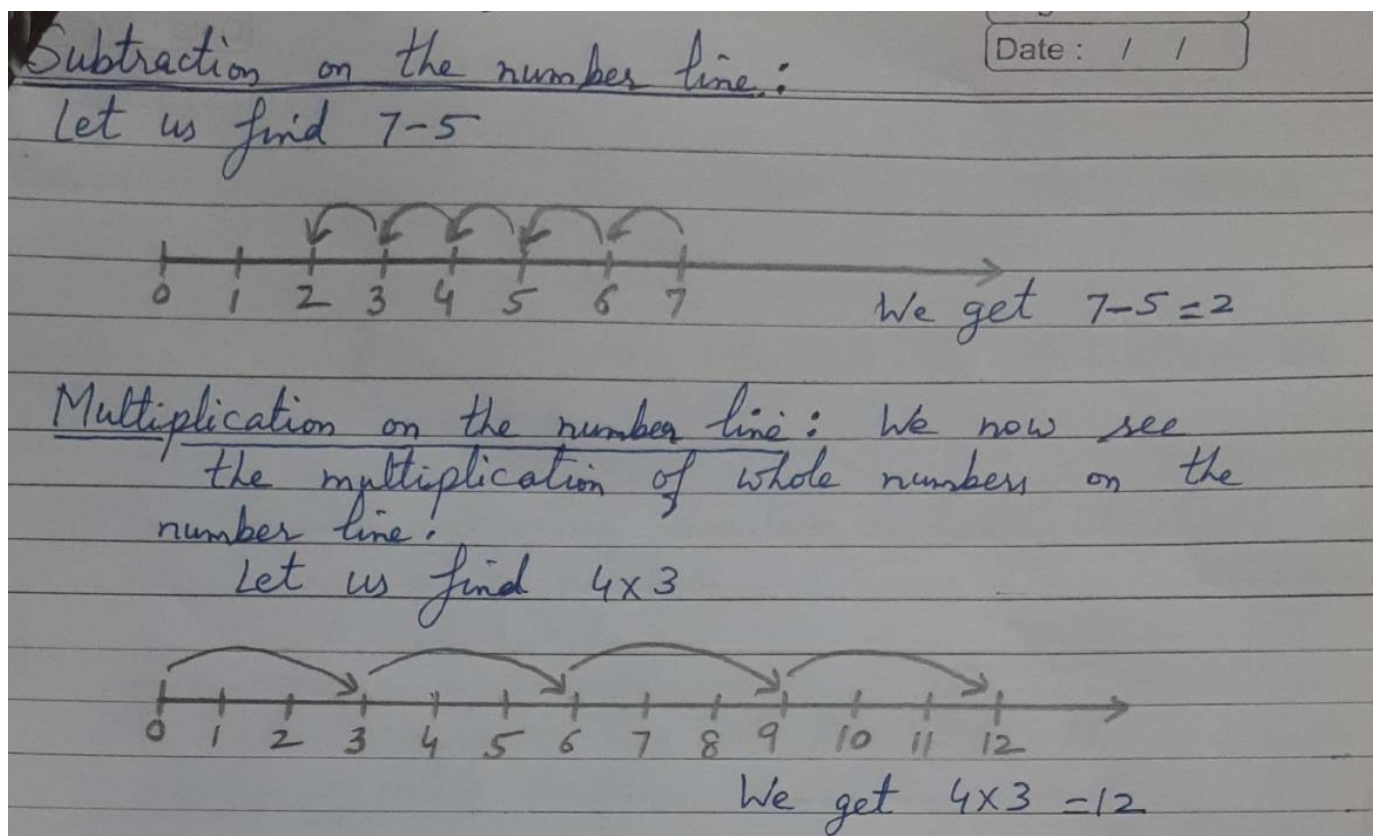 Date : / /
Subtraction on the number line :
Let us find 7-5
0 1 2 3 4 5 6 7
We get 7-5 = 2
Multiplication on the number line : We now see
the multiplication of whole numbers on the
number line.
Let us find 4x3
0 1 2 3 4 5 6 7 8 9 10 11 12
We get 4x3 = 12